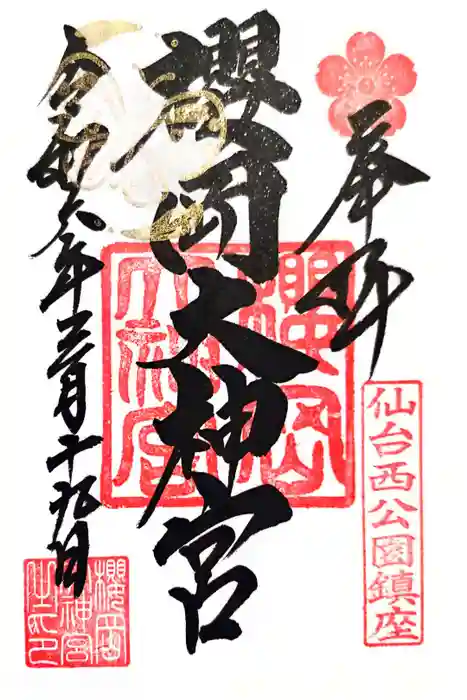 奉拝
仙台西公園鎮座
櫻岡大神宮
櫻岡大神宮
令和六年三月十九日
櫻岡神宮